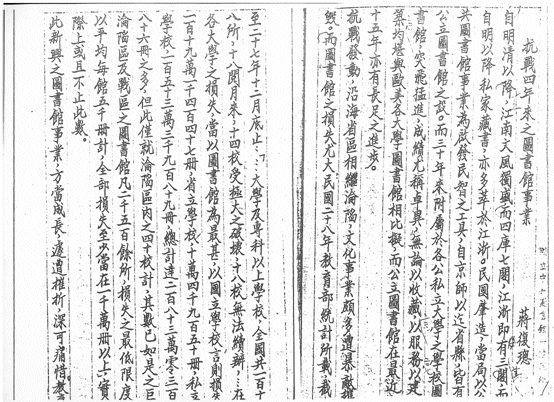 抗戰四年來之圖書館事業
蔣復璁
自明清以降，江南文風獨盛，而四庫七閣，江浙即有三閣，而
自明以降私家藏書，亦多萃於江浙。民國肇造，當局以公
共圖書館事業為啟發民智之工具，自京師以迄省縣，皆有
公立圖書館之設。而三十年來附屬於各公私立大學之學校圖
書館，突飛猛進，成績尤稱卓異，無論以收藏以服務以建
築均堪與歐美各大學圖書館相比擬，而公立圖書館在最近
十五年，亦有長足之進步。
抗戰發動，沿海省區相繼淪陷，文化事業頗多遭暴敵摧
毀，而圖書館之損失尤大民國二十八年教育部統計所載，截
至二十七年十二月底止：「大學及專科以上學校，全國共一百十
八所，十八閱月來，十四校受極大之破壞，十八校無法續辦…在
各大學之損失，當以圖書館為最甚，以國立學校言則損失
一百十九萬一千四百四十七冊，省立學校十萬四千九百五十冊，私立
學校一百五十三萬三千九百八十九冊，總計達二百八十三萬零三百
八十六冊之多，但此僅就淪陷區內之四十校計，其數已如是之巨
淪陷區及戰區之圖書館凡二千五百餘所，損失之最低限度
以平均每館五千冊計，全部損失至少當在一千萬冊以上，實
際上或且不止此數。
此新興之圖書館事業，方當成長，遽遭摧折，深可痛惜，教